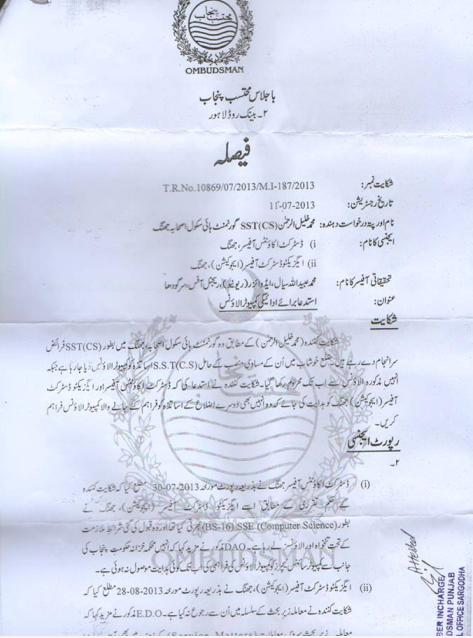 محتسب پنجاب
OMBUDSMAN
باجلاس محتسب پنجاب
۲۔ بینک روڈ لاہور
فیصلہ
شکایت نمبر: T.R.No.10869/07/2013/M.I-187/2013
تاریخ رجسٹریشن: 11-07-2013
نام اور پتہ درخواست دہندہ: محمد خلیل الرحمٰن SST(CS) گورنمنٹ ہائی سکول اصحابہ جھنگ
ایجنسی کا نام: i) ڈسٹرکٹ اکاؤنٹس آفیسر، جھنگ
ii) ایگزیکٹو ڈسٹرکٹ آفیسر (ایجوکیشن)، جھنگ
تحقیقاتی آفیسر کا نام: محمد عبید اللہ سیال، ایڈوائزر (ریونیو)، ریجنل آفس، سرگودھا
عنوان: استدعا برائے ادائیگی کمپیوٹر الاؤنس
شکایت
شکایت کنندہ (محمد خلیل الرحمٰن) کے مطابق وہ گورنمنٹ ہائی سکول اصحابہ، جھنگ میں بطور SST(CS) فرائض
سرانجام دے رہے ہیں۔ ضلع خوشاب میں اُن کے مساوی منصب کے حامل S.S.T(C.S) اساتذہ کو کمپیوٹر الاؤنس دیا جا رہا ہے جبکہ
انہیں مذکورہ الاؤنس سے اب تک محروم رکھا گیا۔ شکایت کنندہ نے استدعا کی کہ ڈسٹرکٹ اکاؤنٹس آفیسر اور ایگزیکٹو ڈسٹرکٹ
آفیسر (ایجوکیشن)، جھنگ کو ہدایت کی جائے کہ وہ انہیں بھی دوسرے اضلاع کے اساتذہ کو فراہم کئے جانے والا کمپیوٹر الاؤنس فراہم
کریں۔
رپورٹ ایجنسی
۲۔
(i) ڈسٹرکٹ اکاؤنٹس آفیسر جھنگ نے بذریعہ رپورٹ مورخہ 30-07-2013 مطلع کیا کہ شکایت کنندہ
کے تقرری کے مطابق اسے ایگزیکٹو ڈسٹرکٹ آفیسر (ایجوکیشن)، جھنگ نے
بطور SSE (Computer Science) (BS-16) بھرتی کیا تھا اور وہ قبول کی گئی شرائط ملازمت
کے تحت تنخواہ اور الاؤنس لے رہا ہے۔ DAO مذکور نے مزید کہا کہ انہیں محکمہ خزانہ حکومت پنجاب کی
جانب سے کمپیوٹر سائنس ٹیچرز کو کمپیوٹر الاؤنس کی فراہمی کی اب تک کوئی ہدایت موصول نہ ہوئی ہے۔
(ii) ایگزیکٹو ڈسٹرکٹ آفیسر (ایجوکیشن)، جھنگ نے بذریعہ رپورٹ مورخہ 28-08-2013 مطلع کیا کہ
شکایت کنندہ نے معاملہ زیر بحث کے سلسلہ میں اُن سے رجوع نہ کیا ہے۔ E.D.O مذکور نے مزید کہا کہ
(Service Matters)
OMBUDSMAN
Attested
BER INCHARGE
DSMAN PUNJAB
OFFICE SARGODHA